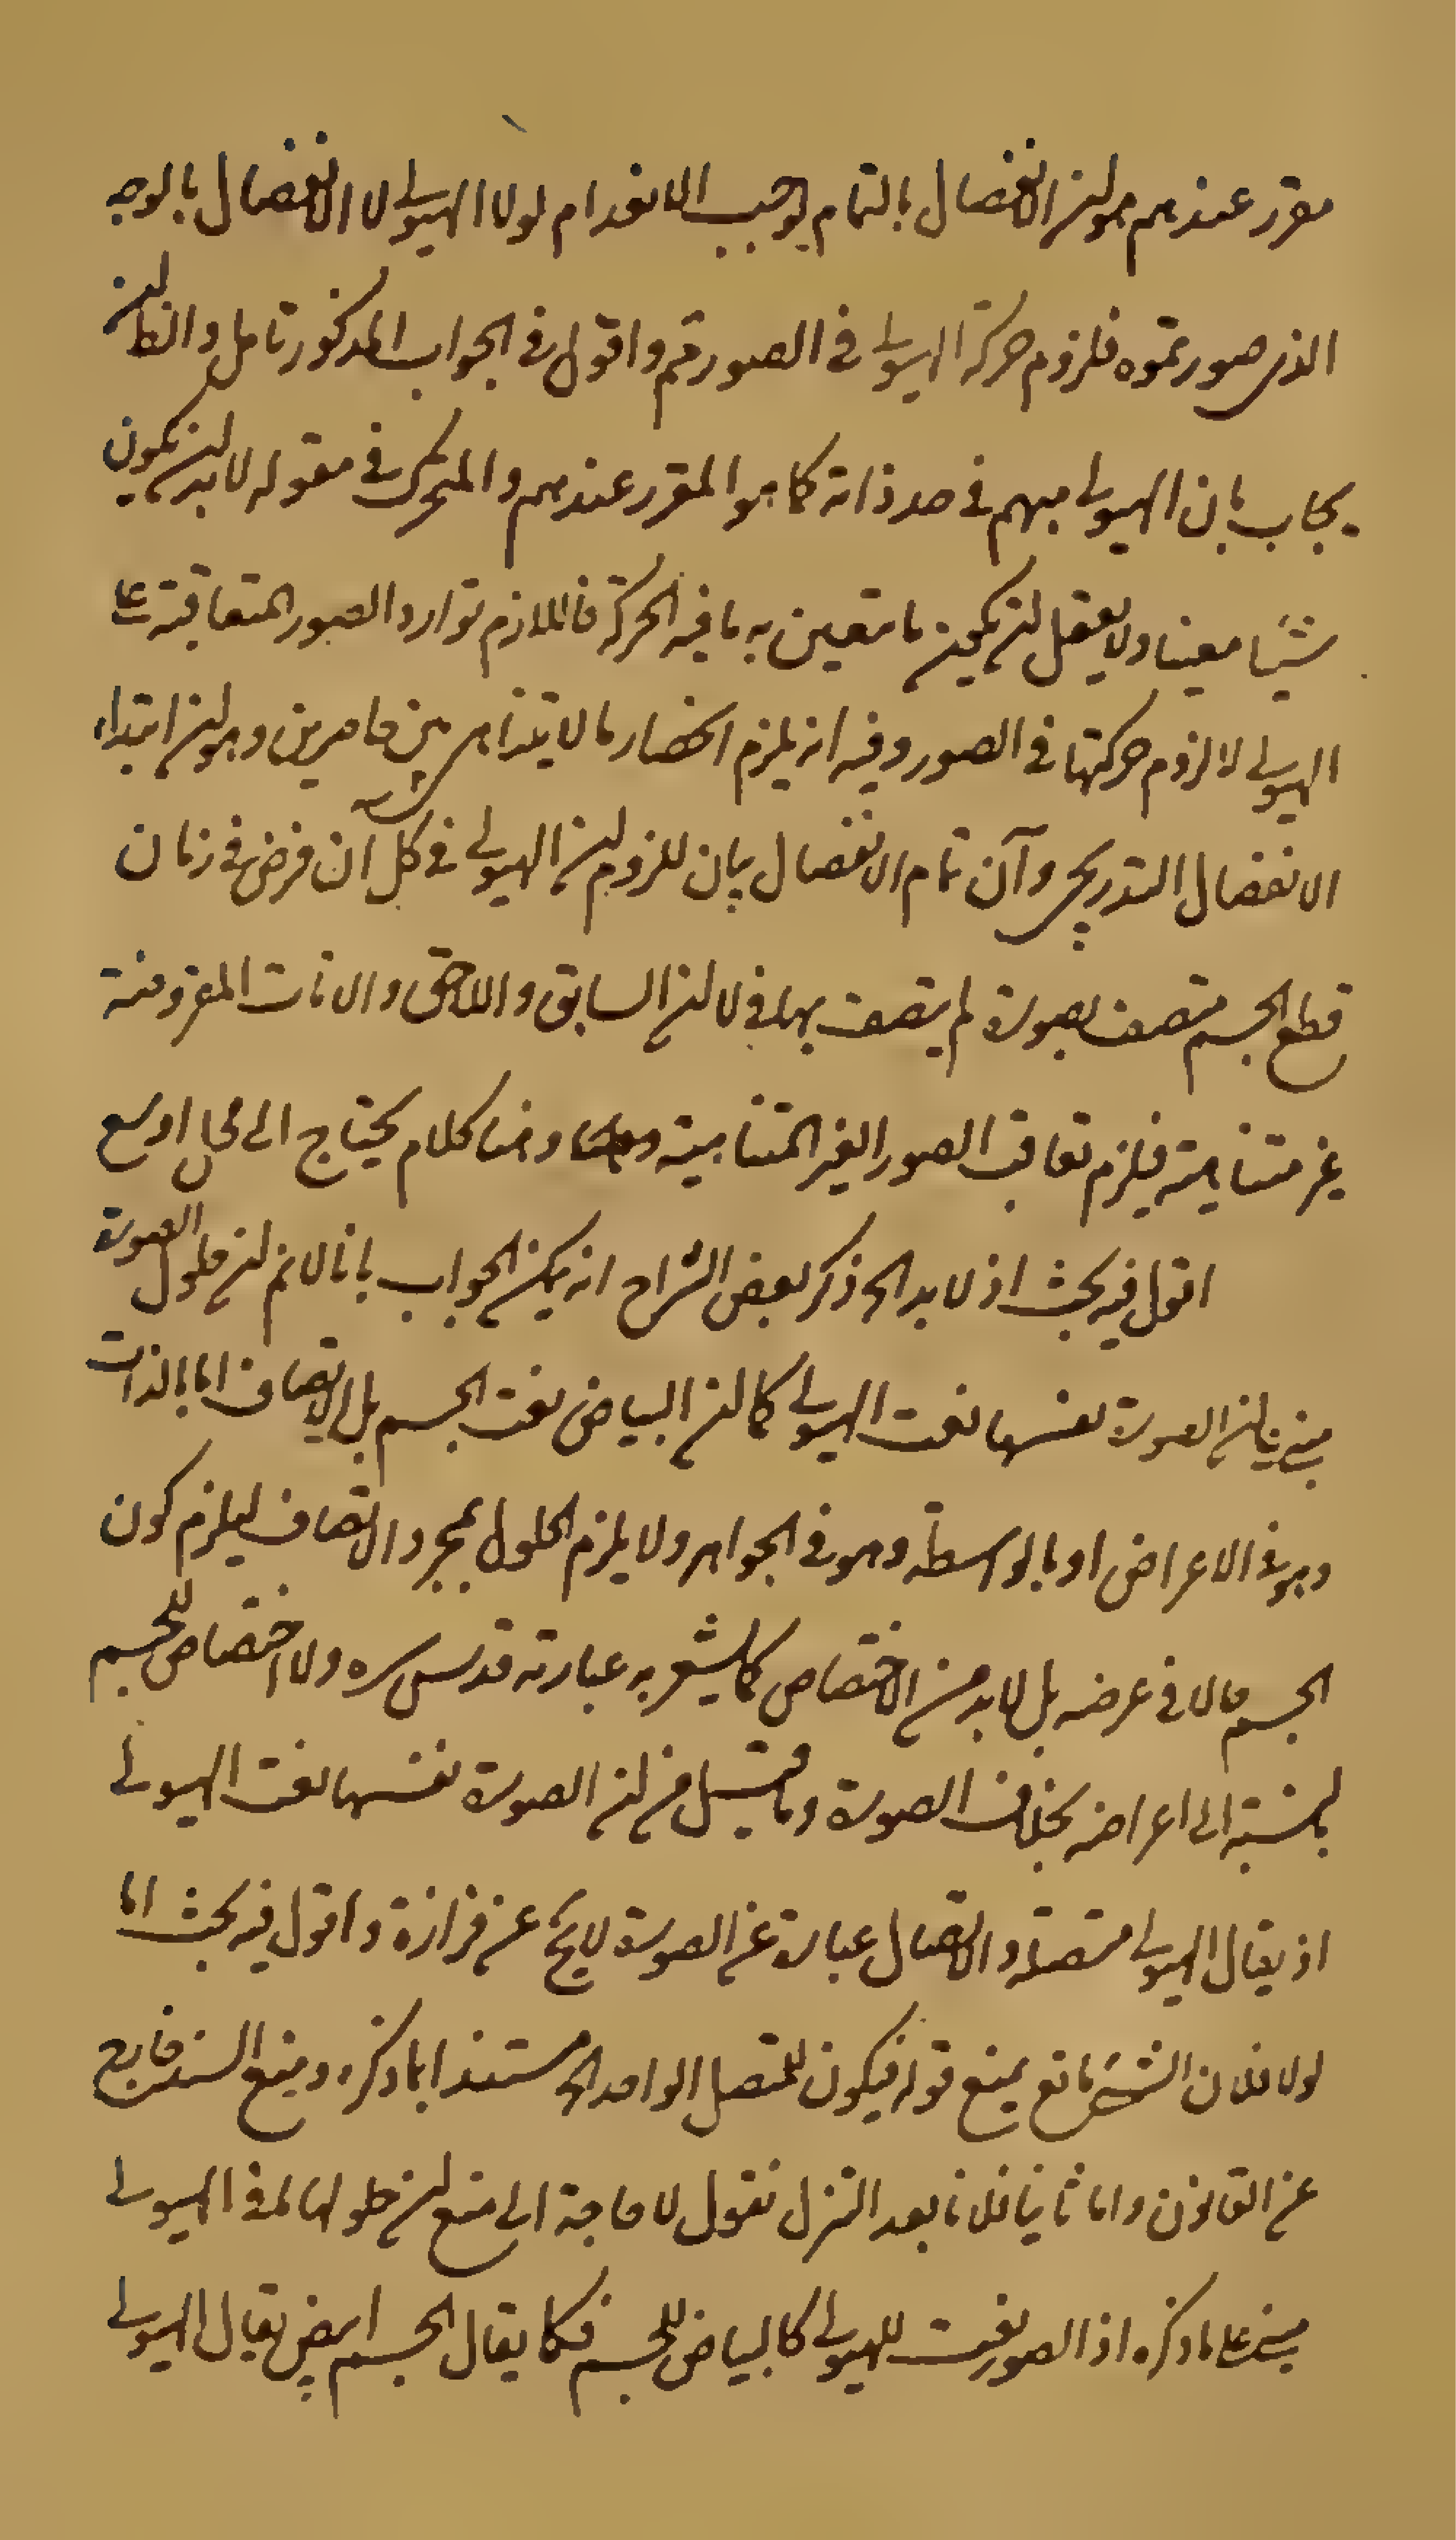 مقرر عندهم هو ان الانفصال بالتمام يوجب الانعدام لولا الهيولى لا الانفصال بالوجه
الذى صورتموه فلزوم حركة الهيولى فى الصور قم واقول فى الجواب المذكور تامل والظ ان
يجاب بان الهيولى مبهم فى حد ذاته كما هو المقرر عندهم والمتحرك فى مقوله لا بد ان يكون
شيئا معينا ولا يعقل ان يكون ما تتعين به ما فيه الحركة فاللازم توارد الصور المتعاقبة على
الهيولى لا لزوم حركتها فى الصور وفيه انه يلزم انحصار ما لا يتناهى بين حاصرين وهو ان ابتداء
الانفصال التدريجى وآن تمام الانفصال بيان للزوم ان الهيولى فى كل آن فرض فى زمان
قطع الجسم متصف بصورة لم يتصف بها فى الان السابق واللاحق والانات المفروضة
غير متناهية فيلزم تعاقب الصور الغير المتناهية وههنا كلام يحتاج الى مجال اوسع
اقول فيه بحث اذ لا بد الخ ذكر بعض الشراح انه يمكن الجواب بانا لانم ان حلول الصورة
مبنى بان الصورة نفسها نعت الهيولى كما ان البياض نعت الجسم بل الاتصاف اما بالذات
وهو فى الاعراض او بالواسطة وهو فى الجواهر ولا يلزم الحلول بمجرد الاتصاف ليلزم كون
الجسم حالا فى عرضه بل لا بد من الاختصاص كما يشعر به عبارته قدس سره ولا اختصاص للجسم
بالنسبة الى اعراضه بخلاف الصورة وما قيل من ان الصورة نفسها نعت الهيولى
اذ يقال الهيولى متصلة والاتصال عبارة عن الصورة لا يخ عن حزازة واقول فيه بحث اما
اولا فلان الش مانع يمنع قوله فيكون للمتصل الواحد الخ مستندا بما ذكره ومنع السند خارج
عن القانون واما ثانيا فلانا بعد التنزل نقول لا حاجة الى منع ان حلولها لما فى الهيولى
مبنى على ما ذكره اذ الصور نعت للهيولى كالبياض للجسم فكما يقال الجسم ابيض يقال الهيولى